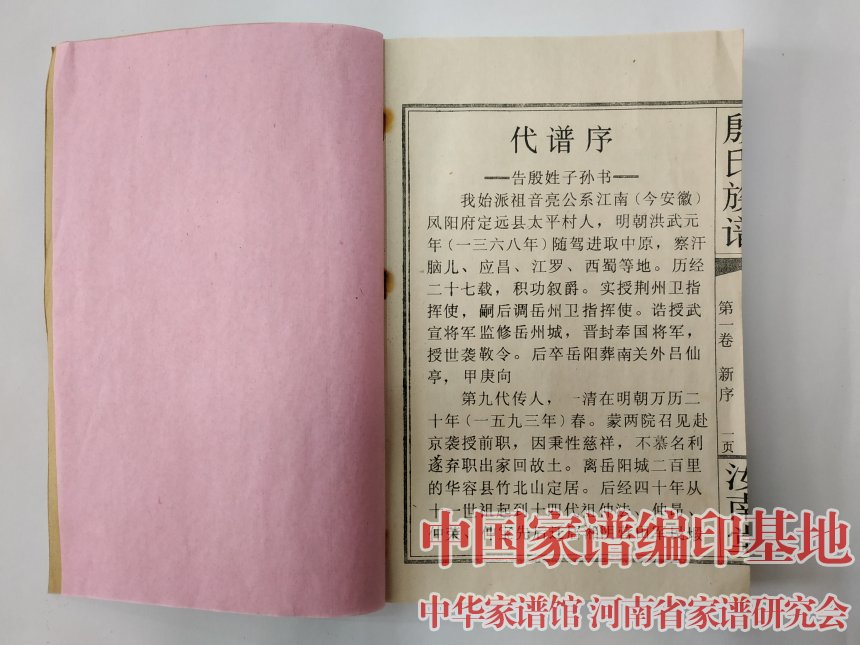 代谱序
——告殷姓子孙书——
我始派祖音亮公系江南（今安徽）
凤阳府定远县太平村人，明朝洪武元
年（一三六八年）随驾进取中原，察汗
脑儿、应昌、江罗、西蜀等地。历经
二十七载，积功叙爵。实授荆州卫指
挥使，嗣后调岳州卫指挥使。诰授武
宣将军监修岳州城，晋封奉国将军，
授世袭敦令。后卒岳阳葬南关外吕仙
亭，甲庚向
第九代传人，一清在明朝万历二
十年（一五九三年）春。蒙两院召见赴
京袭授前职，因秉性慈祥，不慕名利
遂弃职出家回故土。离岳阳城二百里
的华容县竹北山定居。后经四十年从
十一世祖起到十四代祖
殷氏族谱
第一卷
新序
一页
汝南堂
中国家谱编印基地
中华家谱馆 河南省家谱研究会